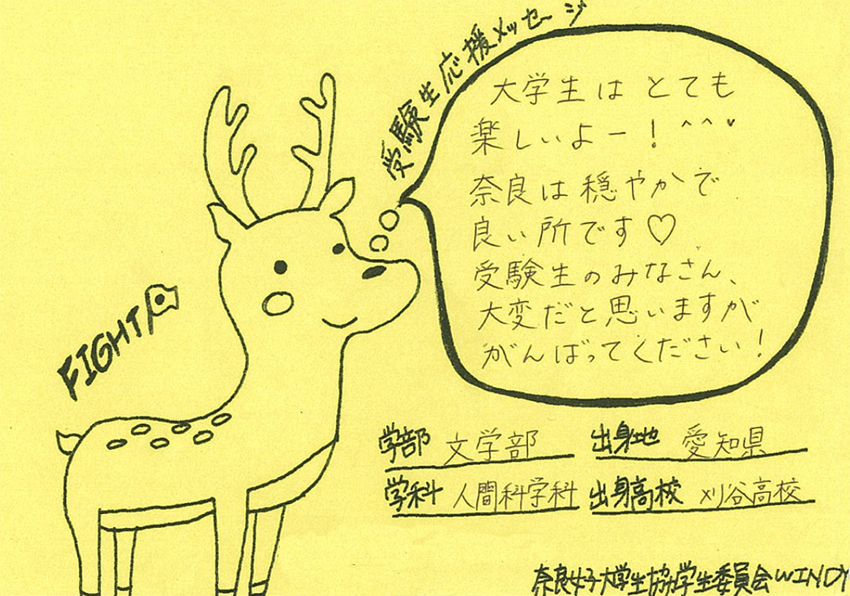 受験生応援メッセージ
大学生は とても
楽しいよー！^^♥
奈良は穏やかで
良い所です♡
受験生のみなさん、
大変だと思いますが
がんばってください！
FIGHT
学部 文学部 出身地 愛知県
学科 人間科学科 出身高校 刈谷高校
奈良女子大学生協学生委員会WINDY